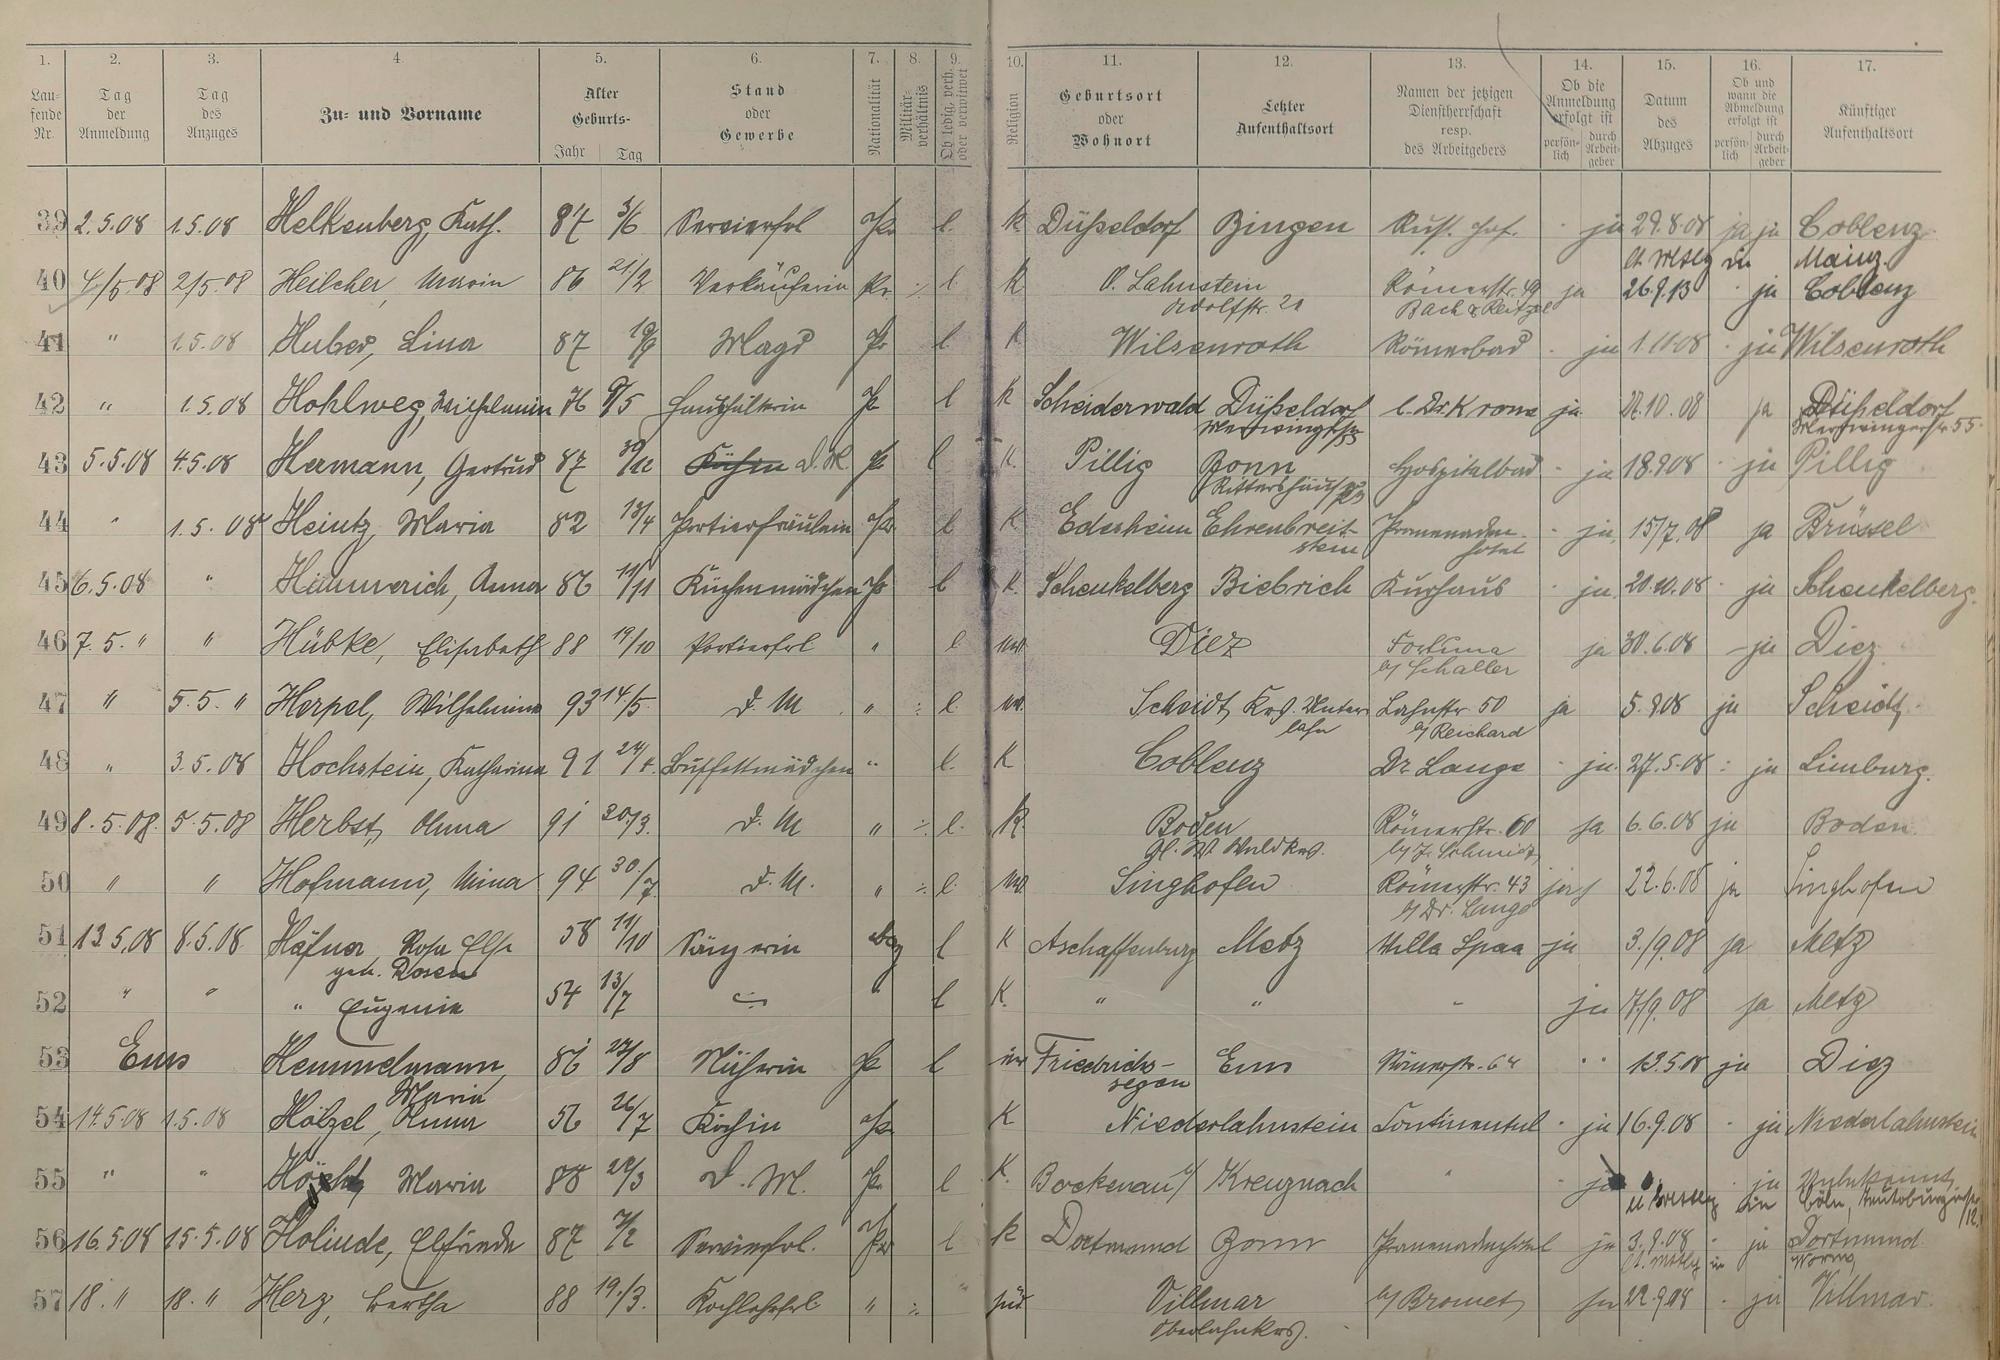 1. 2. 3. 4. 5. 6. 7. 8. 9. 10. 11. 12. 13. 14. 15. 16. 17.
Laufende Nr. Tag der Anmeldung Tag des Anzuges Zu- und Vorname Alter Geburts- Jahr Tag Stand oder Gewerbe Nationalität Militärverhältnis Ob ledig, verh. oder verwitwet Religion Geburtsort oder Wohnort Letzter Aufenthaltsort Namen der jetzigen Dienstherrschaft resp. des Arbeitgebers Ob die Anmeldung erfolgt ist persönlich durch Arbeitgeber Datum des Abzuges Ob und wann die Abmeldung erfolgt ist persönlich durch Arbeitgeber Künftiger Aufenthaltsort
39 2.5.08 1.5.08 Helkenberg, Kath. 87 3/6 Servierfrl Pr. l. K Düßeldorf Bingen Russ. Hof. ja 29.8.08 ja ja Coblenz
Mainz
40 4/5.08 2/5.08 Heilcher, Maria 86 21/2 Verkäuferin Pr. l K O. Lahnstein Römerstr. 49 ja 26.9.13 ja Coblenz
Adolfstr. 21 Bach & Reitzel
41 " 1.5.08 Huber, Lina 87 19/9 Magd Pr l K Wilsenroth Römerbad ja 1.11.08 ja Wilsenroth
42 " 1.5.08 Hohlweg, Wilhelmin 76 9/5 Haushälterin Pr l K Scheiderwald Düßeldorf b. Dr. Krone ja 27.10.08 ja Düßeldorf
43 5.5.08 4.5.08 Hermann, Gertrud 87 30/12 Köchin D.M. Pr l K. Pillig Bonn Hospitalbad ja 18.9.08 ja Pillig
44 " 1.5.08 Heintz, Maria 82 13/4 Portierfräulein Pr. l K Edesheim Ehrenbreitstein Promenadenhotel ja 15/7.08 ja Brüssel
45 6.5.08 " Hammerich, Anna 86 11/11 Küchenmädchen Pr l K. Schenkelberg Biebrich Kurhaus ja 20.10.08 ja Schenkelberg.
46 7.5. " " Hübke, Elisabeth 88 19/10 Portierfrl " l. ev. Diez Fortuna ja 30.6.08 - ja Diez
b/ Schaller
47 " 5.5. " Herpel, Wilhelmine 93 14./5. D. M " l. ev. Scheidt, Krs. Unterlahn Lahnstr 50 ja 5.9.08 ja Scheidt
b/ Reichard
48 " 3.5.08 Hochstein, Katharina 91 24/ Buffettmädchen " l. K Coblenz Dr. Lange ja. 27.5.08 ja Limburg.
49 8.5.08. 5.5.08 Herbst, Anna 91 20./3. D. M " l. K. Boden Römerstr. 60 ja 6.6.08 ja Boden
b/ J. Schmidt
50 " " Hofmann, Mina 94 30./7. D. M. " l. ev Singhofen Römerstr. 43 ja 22.6.08 ja Singhofen
b/ Dr. Lange
51 13.5.08 8.5.08 Häfner Rosa Else 58 11/10 Sängerin Bay l K Aschaffenburg Metz Villa Spaa ja 3./9.08 ja Metz
geb. Dosen
52 " " " Eugenie 54 13/7 " l K. " " " ja 7/9.08 ja Metz
53 Ems Hemmelmann, 86 27/8 Näherin Pr l ev Friedrichssegen Ems Römerstr. 64 13.5.08 ja Diez
Maria
54 14.5.08 1.5.08 Hölzel, Anna 56 26/7 Köchin Pr. K Niederlahnstein Continental ja 16.9.08 ja Niederlahnstein
55 " " Höcht, Maria 88 22/3 D. M. Pr. l K. Bockenau/ Kreuznach " ja ja
56 16.5.08 15.5.08 Holinde, Elfriede 87 7/2 Servierfrl. Pr. l K Dortmund Bonn Promenadenhotel ja 3.9.08 ja Dortmund
Worms
57 18. " 18. " Herz, Bertha 88 19./3. Kochlehrfrl " jüd Villmar b/ Bromet ja 22.9.08 ja Villmar.
Oberlahnkrs.